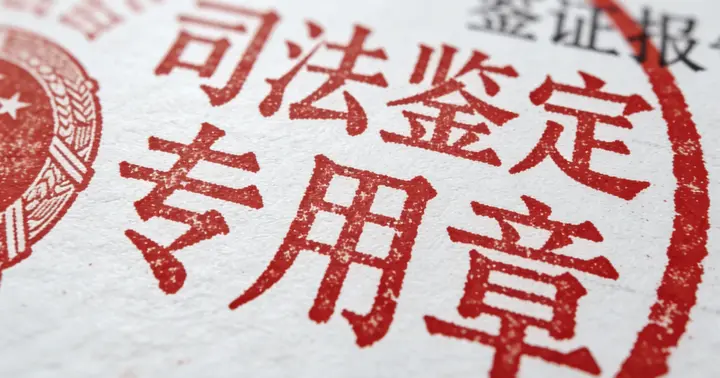 鉴证报
司法鉴定
专用章